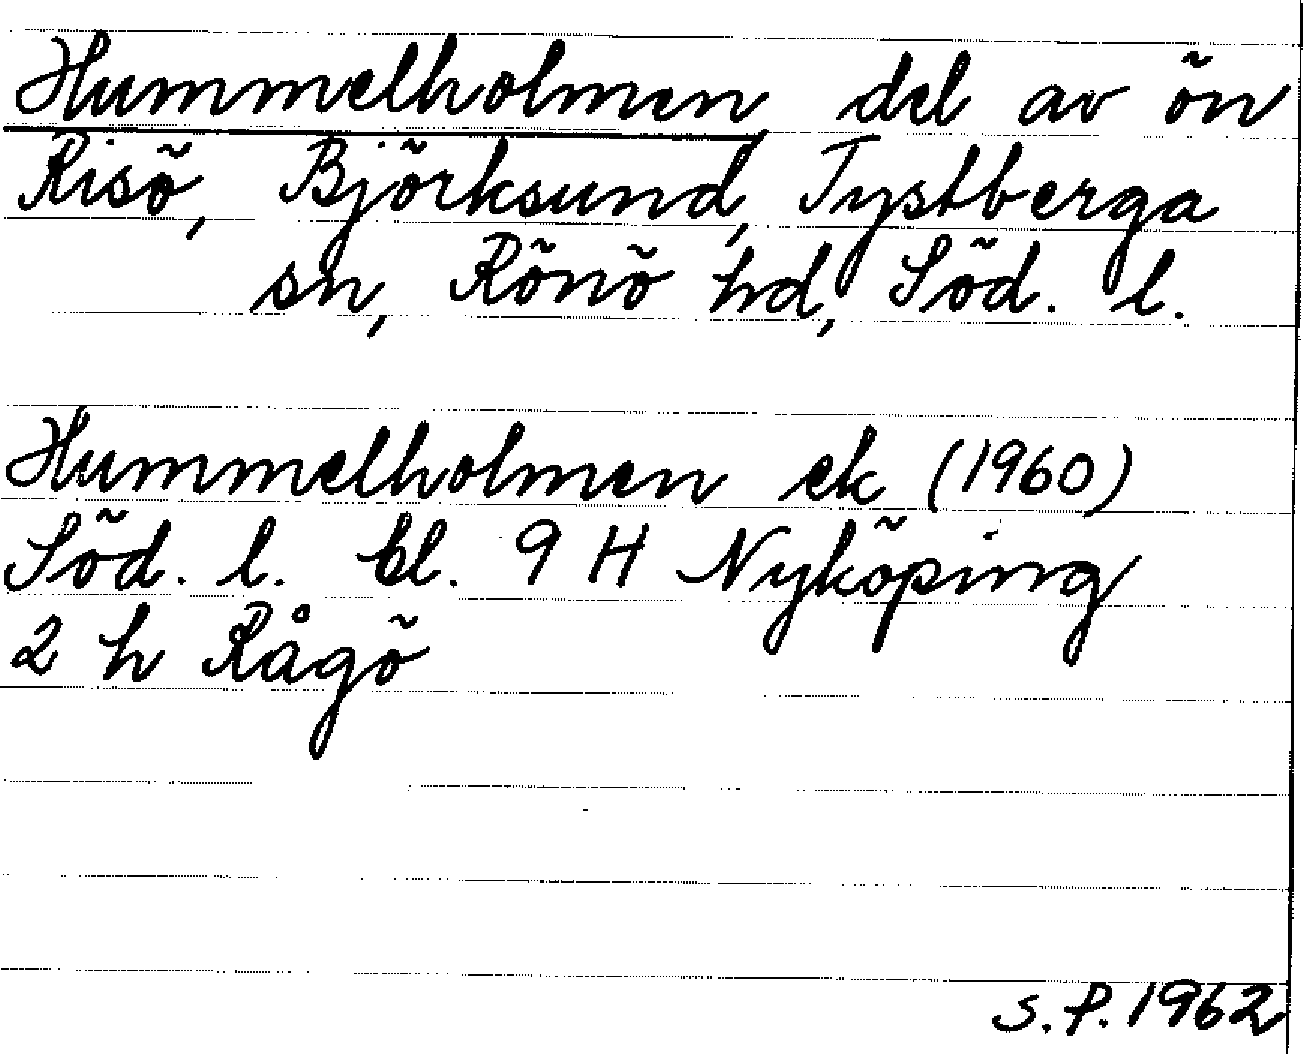 Hummelholmen del av ön
Risö, Björksund, Tystberga
sn, Rönö hd, Söd. l.
Hummelholmen ek (1960)
Söd. l. bl. 9 H Nyköping
2 h Rågö
S. P. 1962